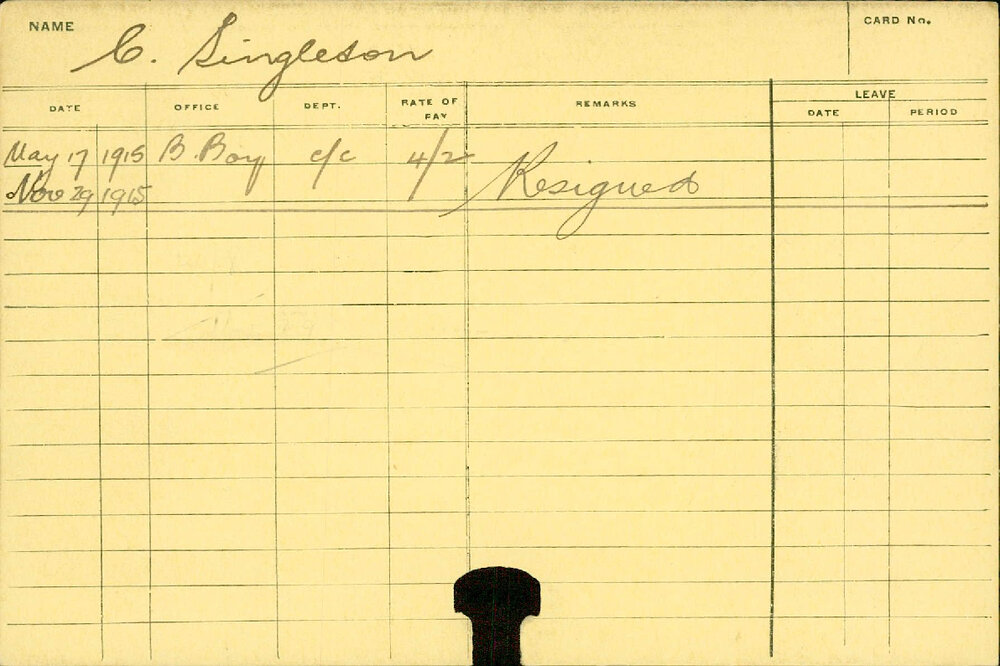 NAME C. Singleton CARD No.
DATE OFFICE DEPT. RATE OF PAY REMARKS LEAVE
DATE PERIOD
May 17 1915 B. Boy c/c 4/2
Nov 29 1915 Resigned